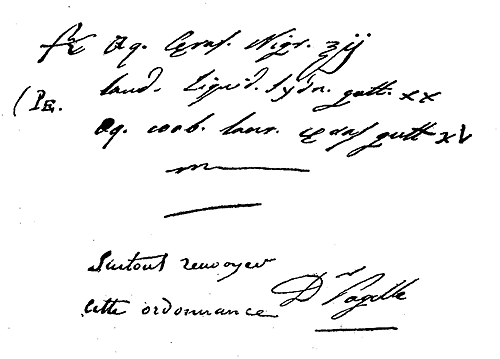 Aq. Ceras. Nigr. ʒij
(Pᴇ. laud. Liquid. Sydn. gutt. xx
Aq. coob. laur. ceras gutt xV
m
Surtout renvoyer
cette ordonnance Dr